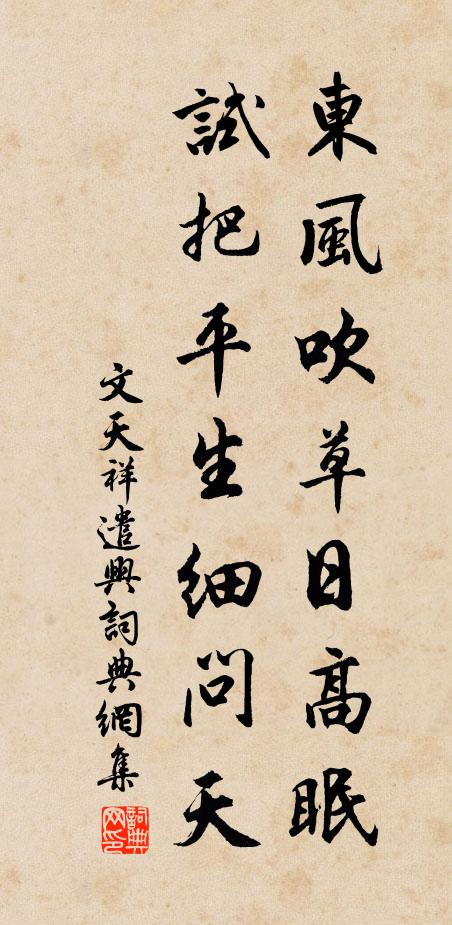 東風吹草日高眠
試把平生細問天
文天祥遣興詞典網集
詞典网印